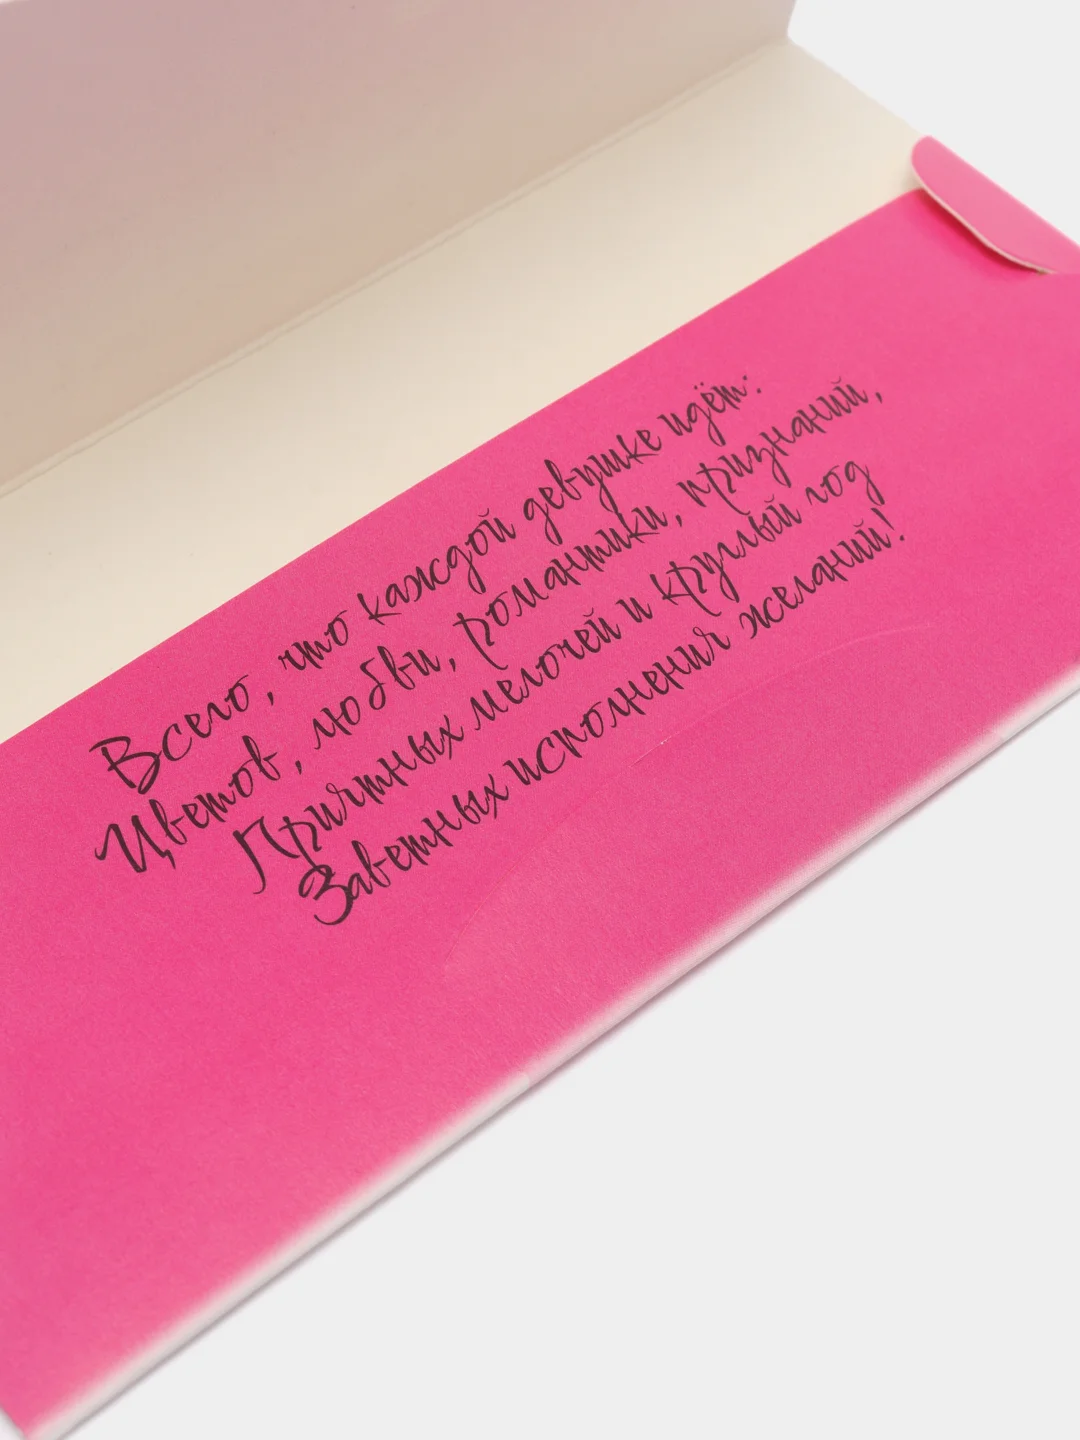 Всего, что каждой девушке идёт:
Цветов, любви, романтики, признаний,
Приятных мелочей и круглый год
Заветных исполнения желаний!